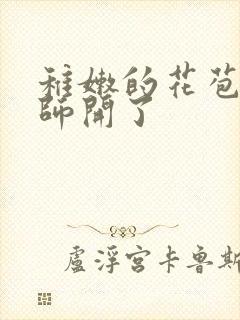 稚嫩的花苞
師開了
盧浮宮卡魯斯